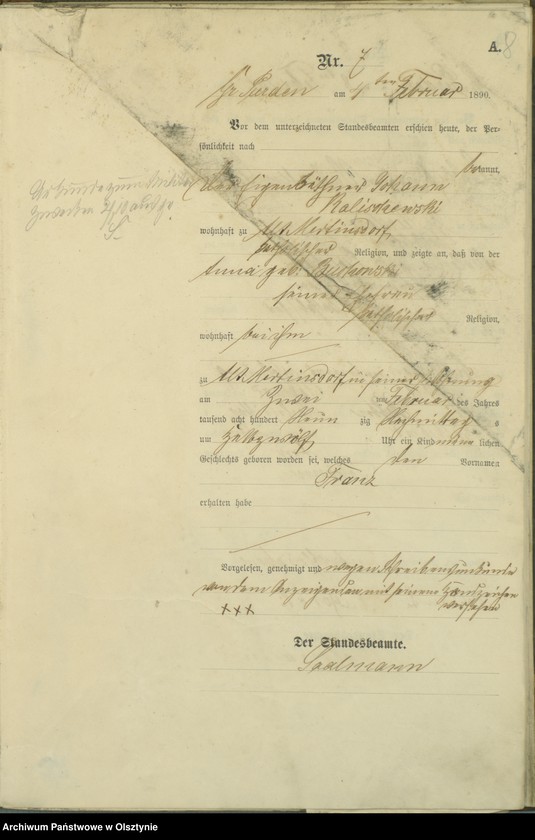 A. 8
Nr. 7
Gr Purden am 4 ten Februar 1890.
Vor dem unterzeichneten Standesbeamten erschien heute, der Per-
sönlichkeit nach
bekannt,
der Eigenkäthner Johann
Kalischewski
wohnhaft zu Alt Mertinsdorf,
katholischer Religion, und zeigte an, daß von der
Anna geb.
seiner Ehefrau
katholischer Religion,
wohnhaft bei ihm
zu Alt Mertinsdorf in seiner Wohnung
am Zwei ten Februar des Jahres
tausend acht hundert Neun zig Nachmittag s
um Uhr ein Kind männ lichen
Geschlechts geboren worden sei, welches den Vornamen
Franz
erhalten habe
Vorgelesen, genehmigt und wegen Schreibensunkunde
von dem Anzeigenden mit seinem Handzeichen
versehen
+++
Der Standesbeamte.
Saalmann
Archiwum Państwowe w Olsztynie